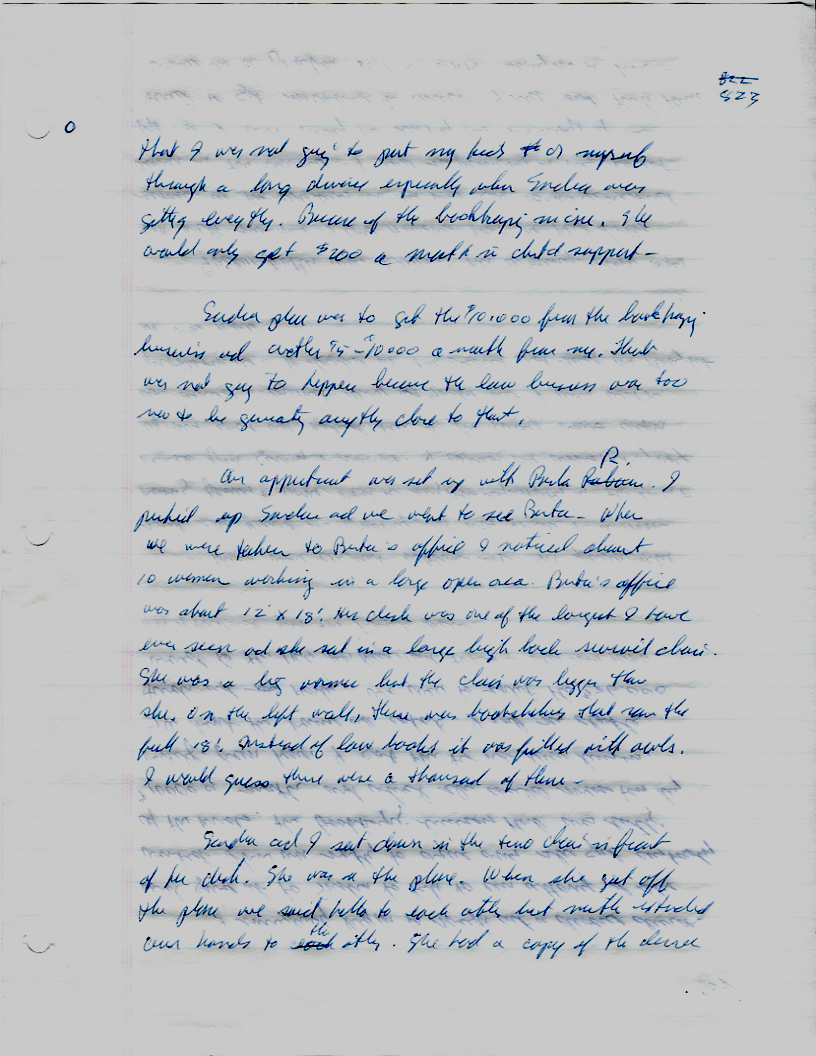 822
823
that I was not going to put my kids or myself
through a long divorce especially when Sandra was
getting everything. Because of the bookkeeping income. She
would only get $200 a month in child support-
Sandra plan was to get the $10,000 from the bookkeeping
business and another $5-$10000 a month from me. That
was not going to happen because the law business was too
new to be generating anything close to that.
An appointment was set up with Berta R. I
picked up Sandra and we went to see Berta- When
we were taken to Berta's office I noticed about
10 women working in a large open area. Berta's office
was about 12' x 18'. Her desk was one of the largest I have
ever seen and she sat in a large high back swivel chair.
She was a big woman but the chair was bigger than
she. On the left wall, there was bookshelves that ran the
full 18'. Instead of law books it was filled with owls.
I would guess there were a thousand of them-
Sandra and I sat down in the two chairs in front
of her desk. She was on the phone. When she got off
the phone we said hello to each other but neither extended
our hands to the other. She had a copy of the decree